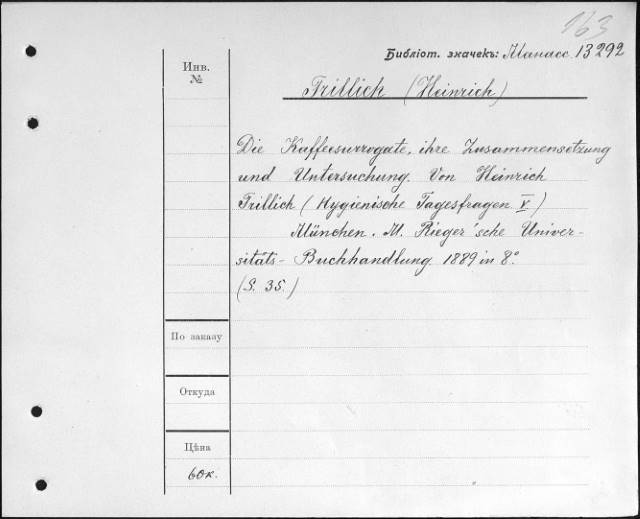 163
Библіот. значекъ: Манасс. 13292
Инв.
№
Trillich (Heinrich)
Die Kaffeesurrogate, ihre Zusammensetzung
und Untersuchung. Von Heinrich
Trillich (Hygienische Tagesfragen V)
München. M. Rieger'sche Univer-
sitäts- Buchhandlung 1889 in 8°
(S. 35.)
По заказу
Откуда
Цѣна
60к.